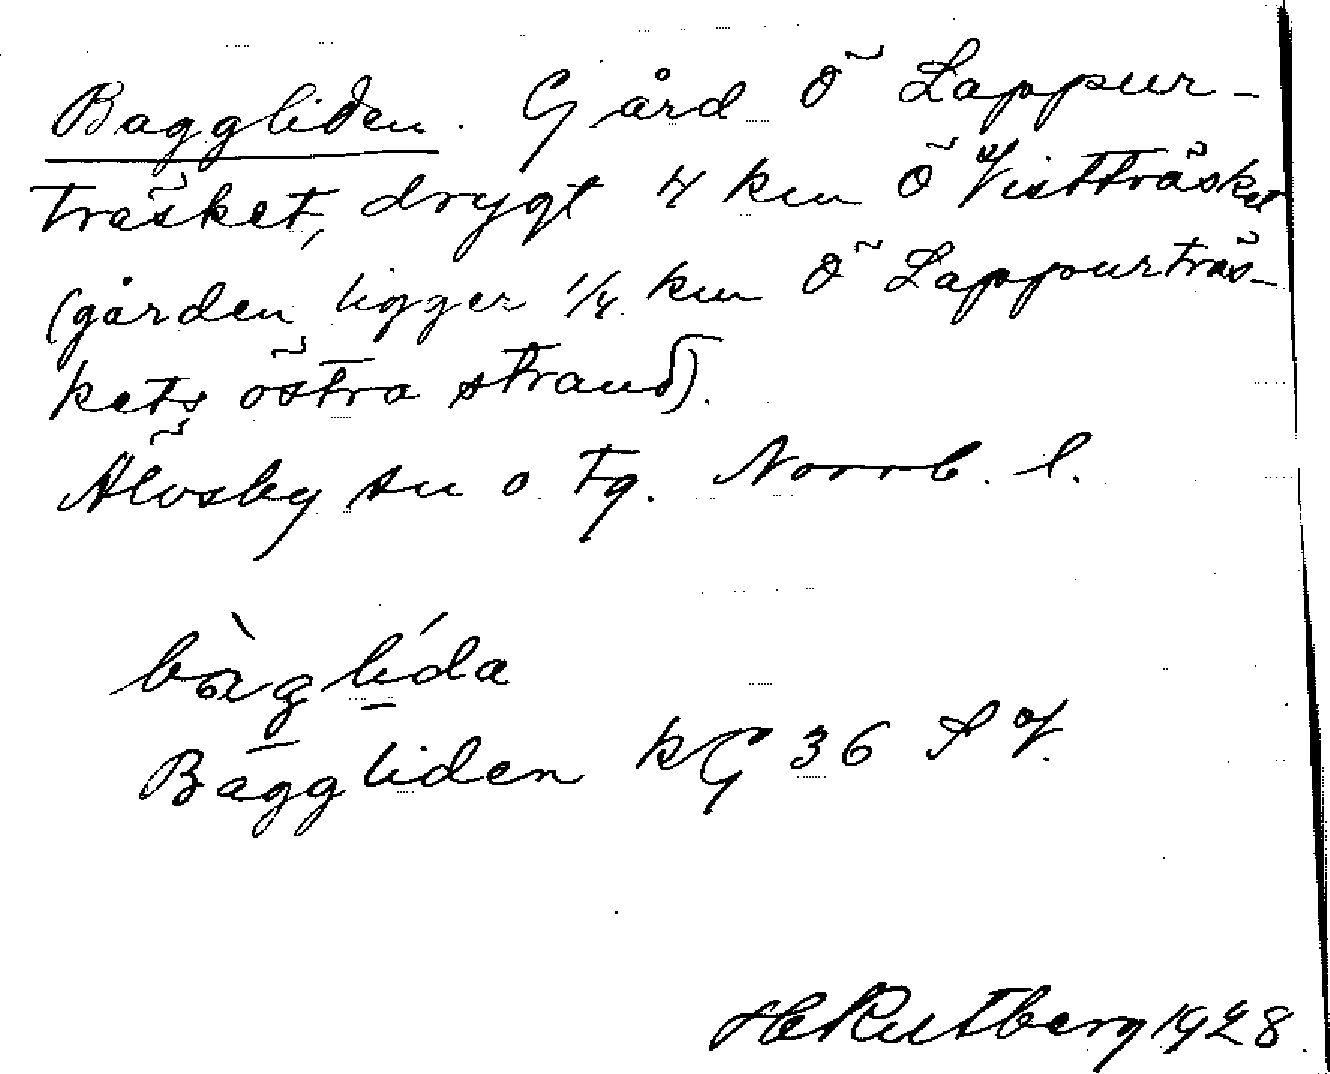 Baggliden. Gård Ö Lappur-
träsket, drygt 4 km Ö Vistträsket
(gården ligger 1/4 km Ö Lappurträs-
kets östra strand).
Älvsby sn o tg. Norrb. l.
bàglída
Baggliden kG 36 SV
H Rutberg 1928